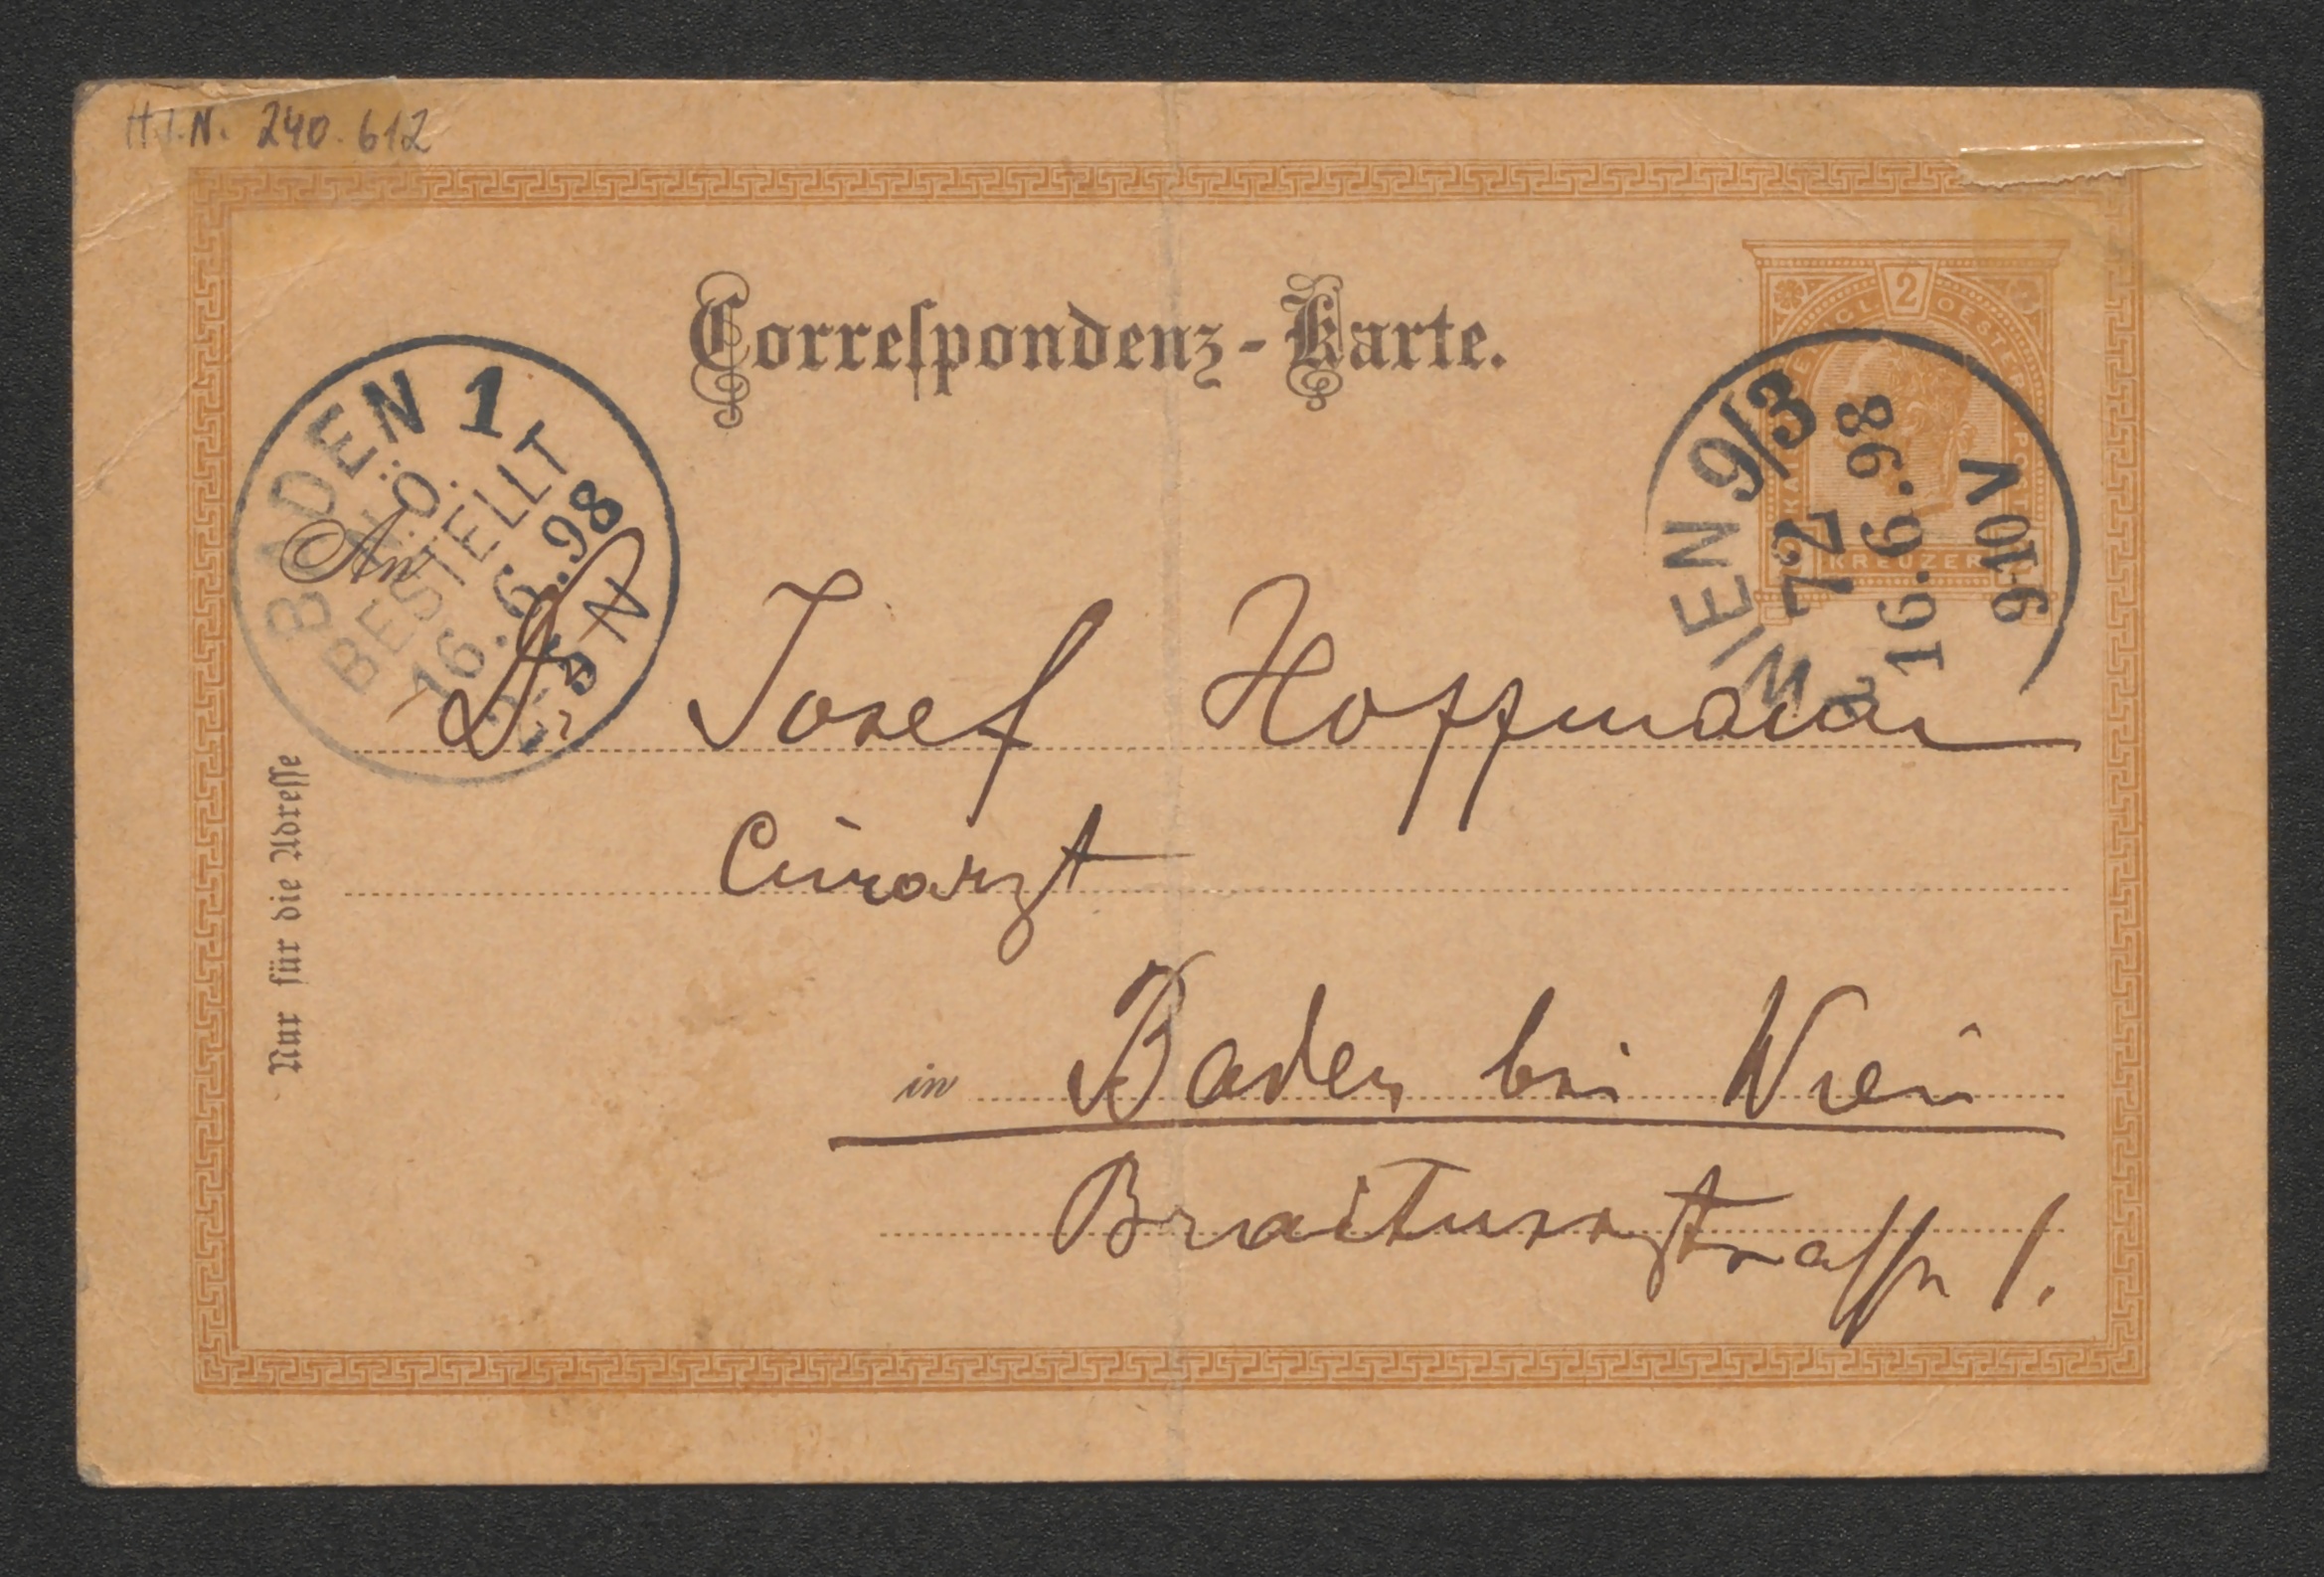 H.I.N. 240.612
Correspondenz-Karte.
2
KREUZER
WIEN 9/3
72
16.6.98
9-10V
BADEN 1
N.Ö.
BESTELLT
16.6.98
N
An
Dr Josef Hoffmann
Curarzt
in Baden bei Wien
Braitnerstrasse 1.
Nur für die Adresse